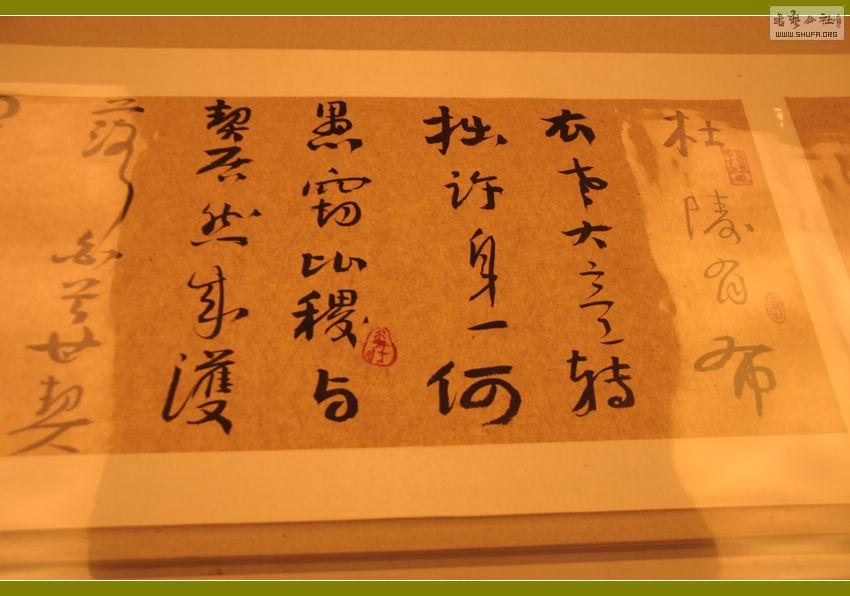 杜陵有布
衣老大意轉
拙許身一何
愚窃比稷与
契居然成濩
落白首甘契
書藝公社
WWW.SHUFA.ORG